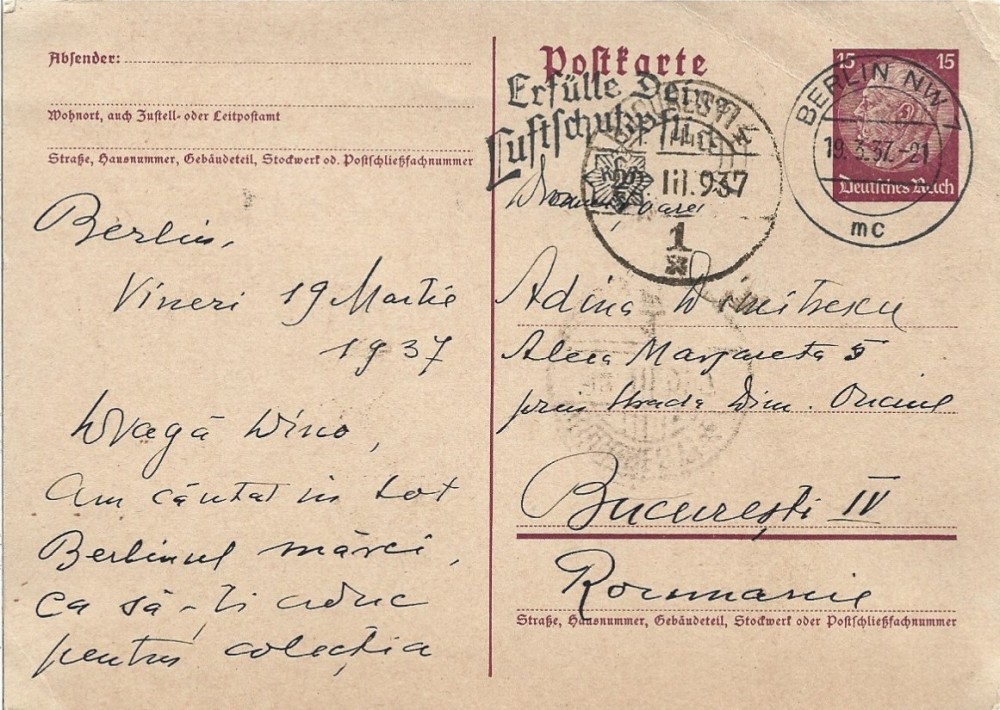 Absender:
Wohnort, auch Zustell- oder Leitpostamt
Straße, Hausnummer, Gebäudeteil, Stockwerk od. Postschließfachnummer
Berlin,
Vineri 19 Martie
1937
Dragă Dino,
am căutat în tot
Berlinul mărci,
ca să-ți aduc
pentru colecția
Postkarte
Erfülle Deine
Luftschutzpflicht
III.937
1
15 15
Deutsches Reich
BERLIN NW 7
19.3.37.-21
mc
Adina Dimitrescu
Aleea Margareta 5
prin Strada Dim.
București IV
Roumanie
Straße, Hausnummer, Gebäudeteil, Stockwerk oder Postschließfachnummer